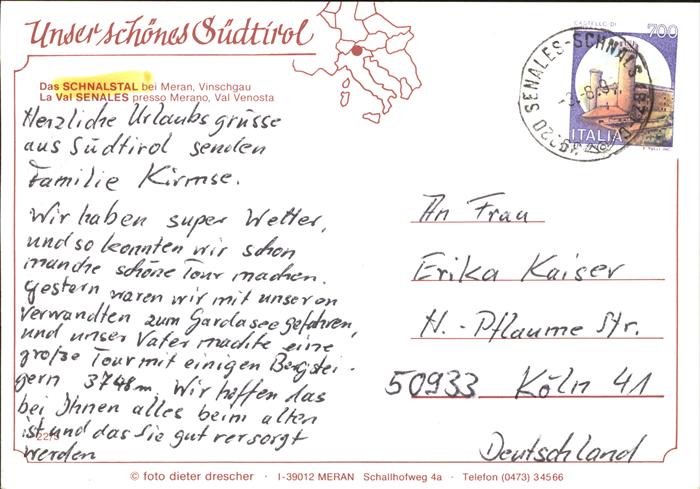 Unser schönes Südtirol
Das SCHNALSTAL bei Meran, Vinschgau
La Val SENALES presso Merano, Val Venosta
Herzliche Urlaubsgrüsse
aus Südtirol senden
Familie Kirmse.
Wir haben super Wetter,
und so konnten wir schon
manche schöne Tour machen.
Gestern waren wir mit unseren
Verwandten zum Gardasee gefahren,
und unser Vater machte eine
große Tour mit einigen Bergstei-
gern 3748m. Wir hoffen das
bei Ihnen alles beim alten
ist und das Sie gut versorgt
werden
CASTELLO DI
700
ITALIA
SENALES-SCHNALS
39020
An Frau
Erika Kaiser
H.-Pflaume Str.
50933 Köln 41
Deutschland
© foto dieter drescher · I-39012 MERAN Schallhofweg 4a · Telefon (0473) 34566